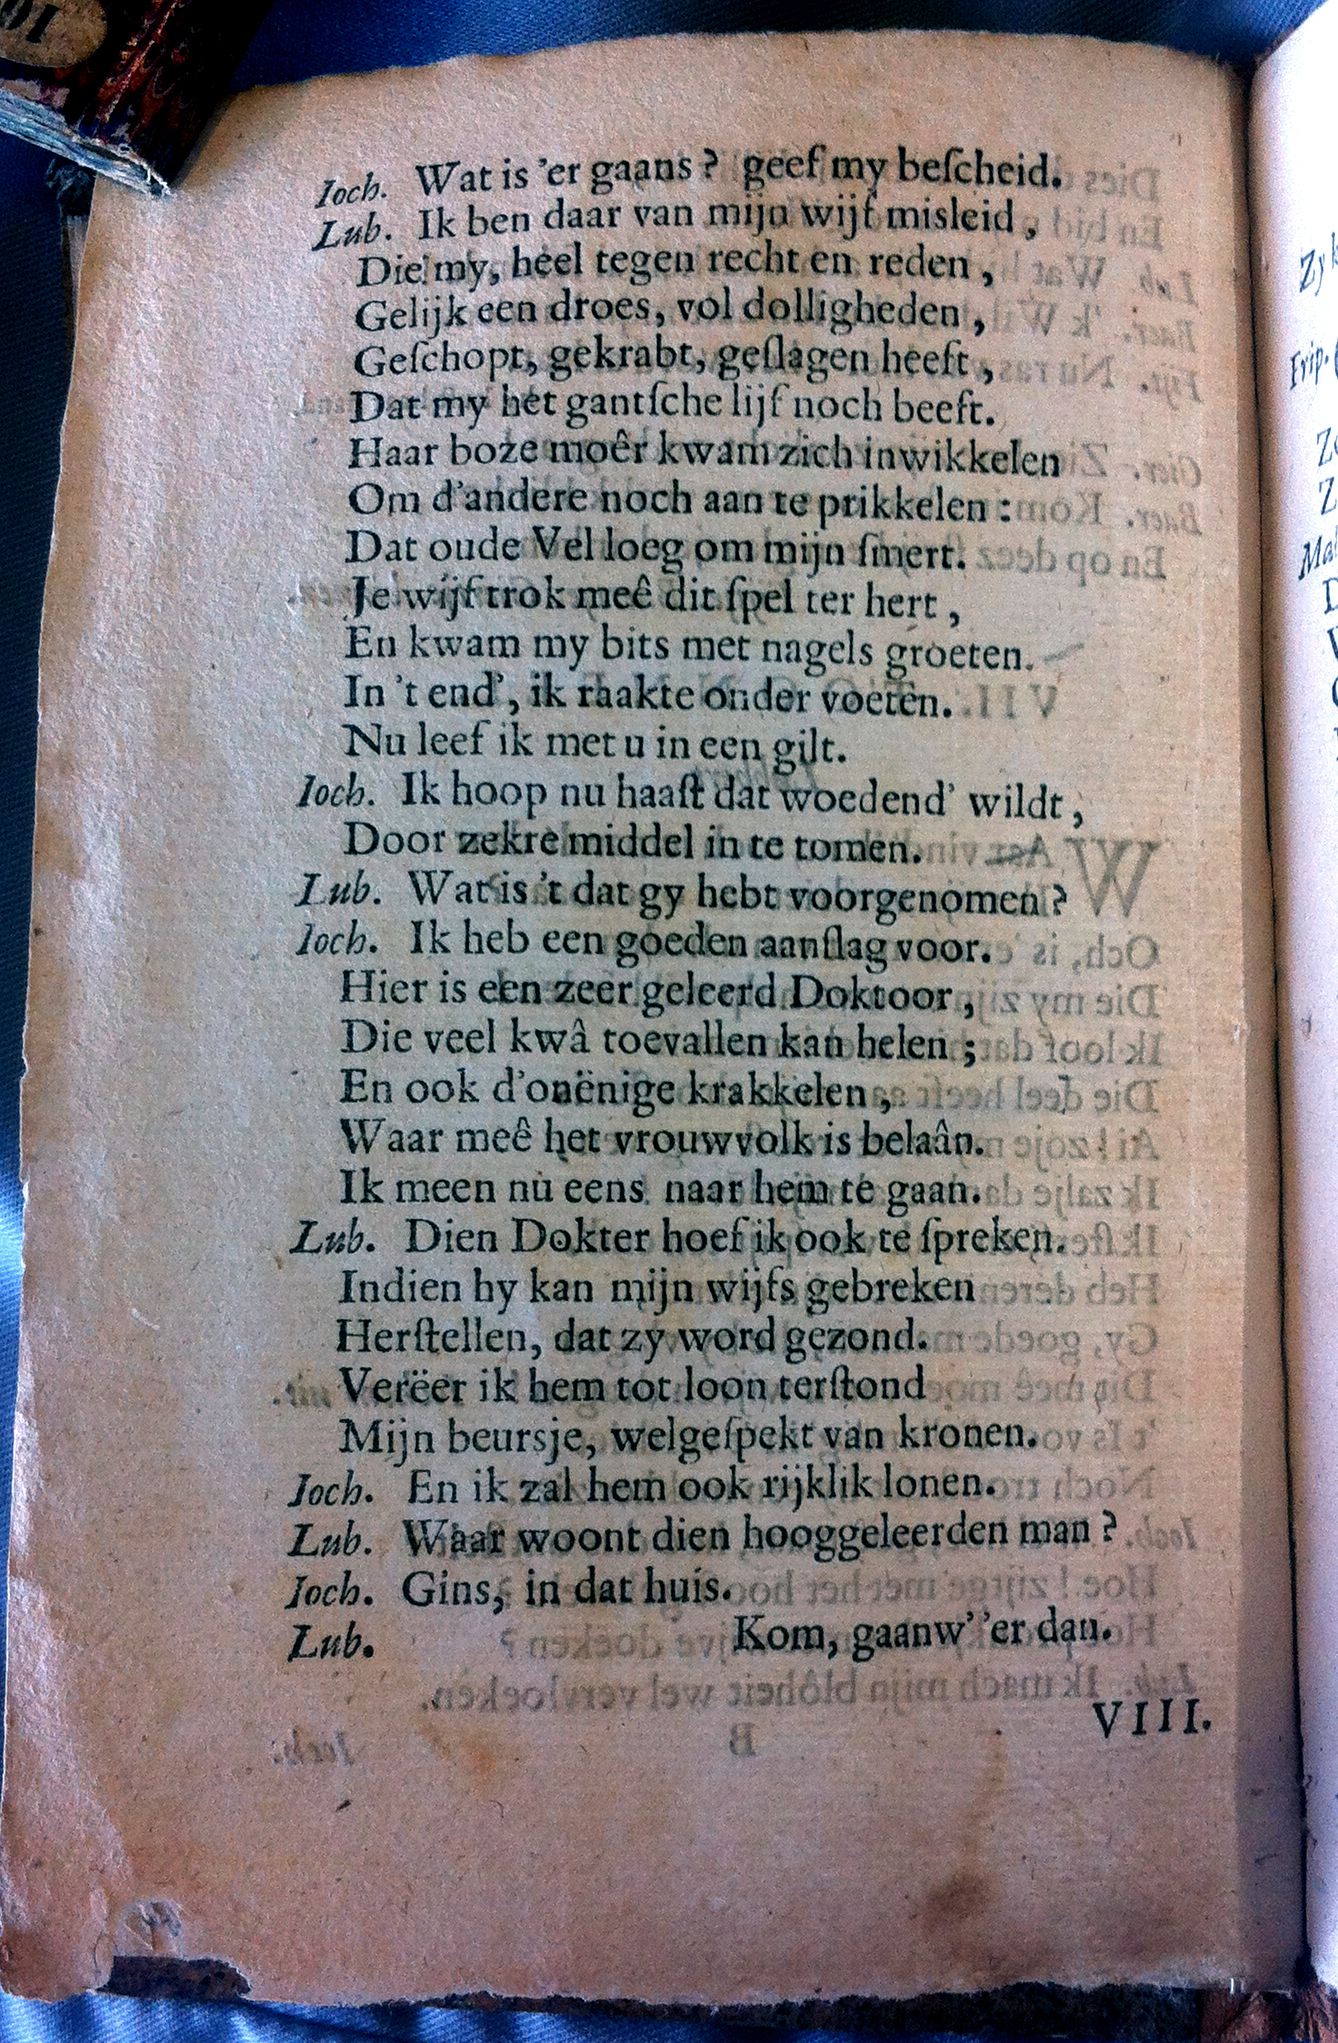 Ioch. Wat is 'er gaans? geef my beſcheid.
Lub. Ik ben daar van mijn wijf misleid,
Die my, heel tegen recht en reden,
Gelijk een droes, vol dolligheden,
Geſchopt, gekrabt, geſlagen heeft,
Dat my het gantſche lijf noch beeft.
Haar boze moêr kwam zich inwikkelen
Om d'andere noch aan te prikkelen:
Dat oude Vel loeg om mijn ſmert.
Je wijf trok meê dit ſpel ter hert,
En kwam my bits met nagels groeten.
In 't end', ik raakte onder voeten.
Nu leef ik met u in een gilt.
Ioch. Ik hoop nu haaſt dat woedend' wildt,
Door zekre middel in te tomen.
Lub. Wat is 't dat gy hebt voorgenomen?
Ioch. Ik heb een goeden aanſlag voor.
Hier is een zeer geleerd Doktoor,
Die veel kwâ toevallen kan helen;
En ook d'onënige krakkelen,
Waar meê het vrouwvolk is belaân.
Ik meen nu eens naar hem te gaan.
Lub. Dien Dokter hoef ik ook te ſpreken.
Indien hy kan mijn wijfs gebreken
Herſtellen, dat zy word gezond.
Verëer ik hem tot loon terſtond
Mijn beursje, welgeſpekt van kronen.
Ioch. En ik zal hem ook rijklik lonen.
Lub. Waar woont dien hooggeleerden man?
Ioch. Gins, in dat huis.
Lub. Kom, gaanw' 'er dan.
VIII.